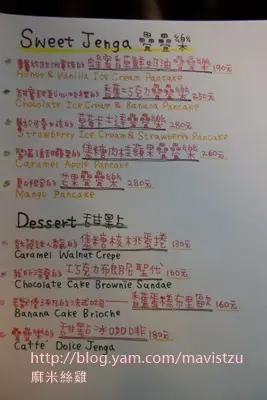 Sweet Jenga 疊疊樂
蜂蜜香草鮮奶油疊疊樂 190元
Honey & Vanilla Ice Cream Pancake
香蕉巧克力疊疊樂 250元
Chocolate Ice Cream & Banana Pancake
草莓卡士達疊疊樂 280元
Strawberry Ice Cream & Strawberry Pancake
焦糖肉桂蘋果疊疊樂 260元
Caramel Apple Pancake
芒果疊疊樂 280元
Mango Pancake
Dessert 甜點
焦糖核桃蛋捲 130元
Caramel Walnut Crepe
巧克力布朗尼聖代 160元
Chocolate Cake Brownie Sundae
香蕉蛋糕布里歐 160元
Banana Cake Brioche
甜點冰咖啡 180元
Caffe' Dolce Jenga
http://blog.yam.com/mavistzu
麻米絲雞